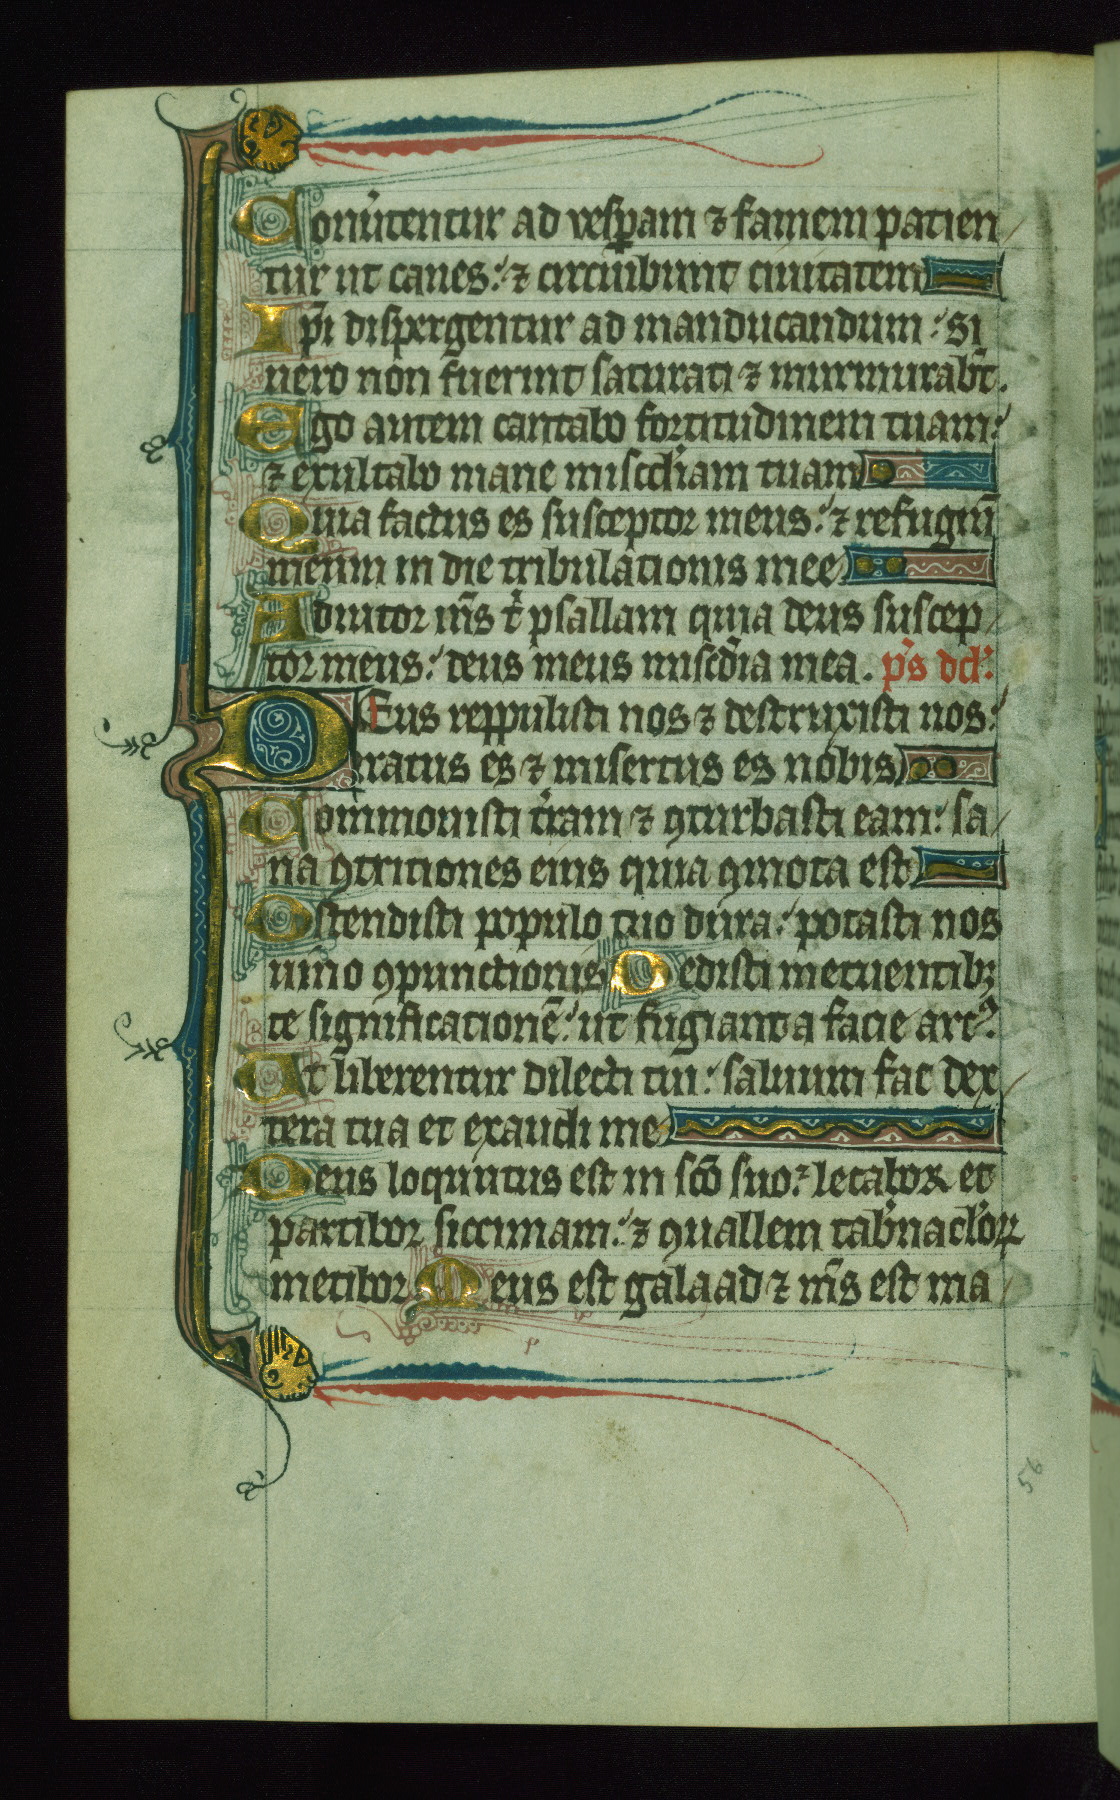 Conu̾tentur ad vesꝑam ⁊ famem patien/
tur ut canes: ⁊ circuibunt ciuitatem
Ip̄i dispergentur ad manducandum: si
uero non fuerint saturati ⁊ murmurab̄t.
Ego autem cantabo fortitudinem tuam:
⁊ exultabo mane misćdiam tuam
Quia factus es susceptor meus: ⁊ refugiū
meum in die tribulationis mee
Adiutor m̄s tⁱ psallam quia deus suscep/
tor meus: deus meus miscd̄ia mea. p̄s dd̾.
DEus reppulisti nos ⁊ destruxisti nos:
iratus es ⁊ misertus es nobis
Commouisti t̾ram ⁊ ꝯturbasti eam: sa/
na ꝯtritiones eius quia ꝯmota est
Ostendisti populo tuo dura: potasti nos
uino ꝯpunctionis Dedisti metuentibꝫ
te significationē: ut fugiant a facie arc⁹
Ut liberentur dilecti tui: saluum fac dex/
tera tua et exaudi me
Deus loquutus est in sc̄o suo: letaboꝛ et
partibor siccimam: ⁊ ꝯuallem tab̾nac̾loꝝ
metibor Meus est galaad ⁊ m̄s est ma
56